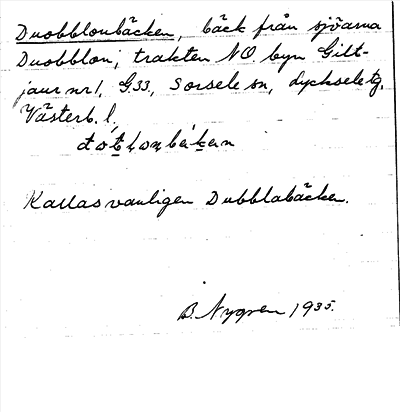 Duobblonbäcken, bäck från sjöarna
Duobblon, trakten NO byn Gilt-
jaur nr 1, G33, Sorsele sn, Lycksele tg,
Västerb. l.
Kallas vanligen Dubblabäcken.
B. Nygren 1935.